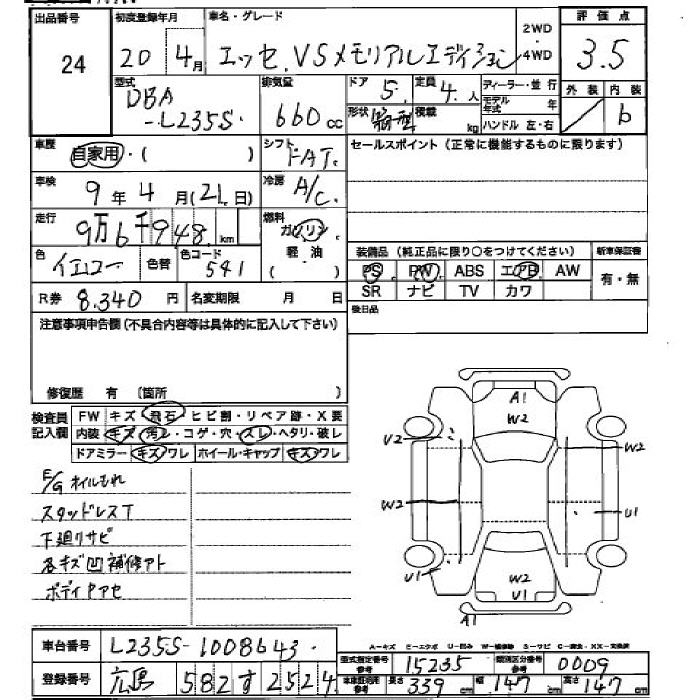 出品番号 初度登録年月 車名・グレード 2WD・4WD 評価点
24 20 4月 エッセ.VSメモリアルエディション 3.5
型式 排気量 ドア 5. 定員 4.人 ディーラー・並行 外装 内装
DBA-L235S. 660cc 形状 箱型 積載 kg モデル年式 年 ハンドル 左・右 b
車歴 自家用・( ) シフト FAT. セールスポイント (正常に機能するものに限ります)
車検 9年4月(21日) 冷房 A/C.
走行 9万6千948.km 燃料 ガソリン 軽油 ( )
色 イエロー 色替 色コード 541
装備品 (純正品に限り○をつけてください) 新車保証書
PS PW ABS エアB AW 有・無
SR ナビ TV カワ
R券 8.340円 名変期限 月 日
後日品
注意事項申告欄(不具合内容等は具体的に記入して下さい)
修復歴 有 〔箇所 〕
検査員記入欄 FW キズ・飛石・ヒビ割・リペア跡・X要
内装 キズ・汚レ・コゲ・穴・スレ・ヘタリ・破レ
ドアミラー キズ・ワレ ホイール・キャップ キズ・ワレ
E/Gオイルもれ
スタッドレスT
下廻リサビ
各キズ凹補修アト
ボディヤアセ
A1
W2
U2
W2
W2
U1
U1
W2
U1
A1
A-キズ E-エクボ U-凹み W-補修跡 S-サビ C-腐食 X・XX-交換済
車台番号 L235S-1008643.
型式指定番号 参考 15235 類別区分番号 参考 0009
登録番号 広島 582 す 2524
車車証明用 参考 長さ 339cm 幅 147cm 高さ 147cm